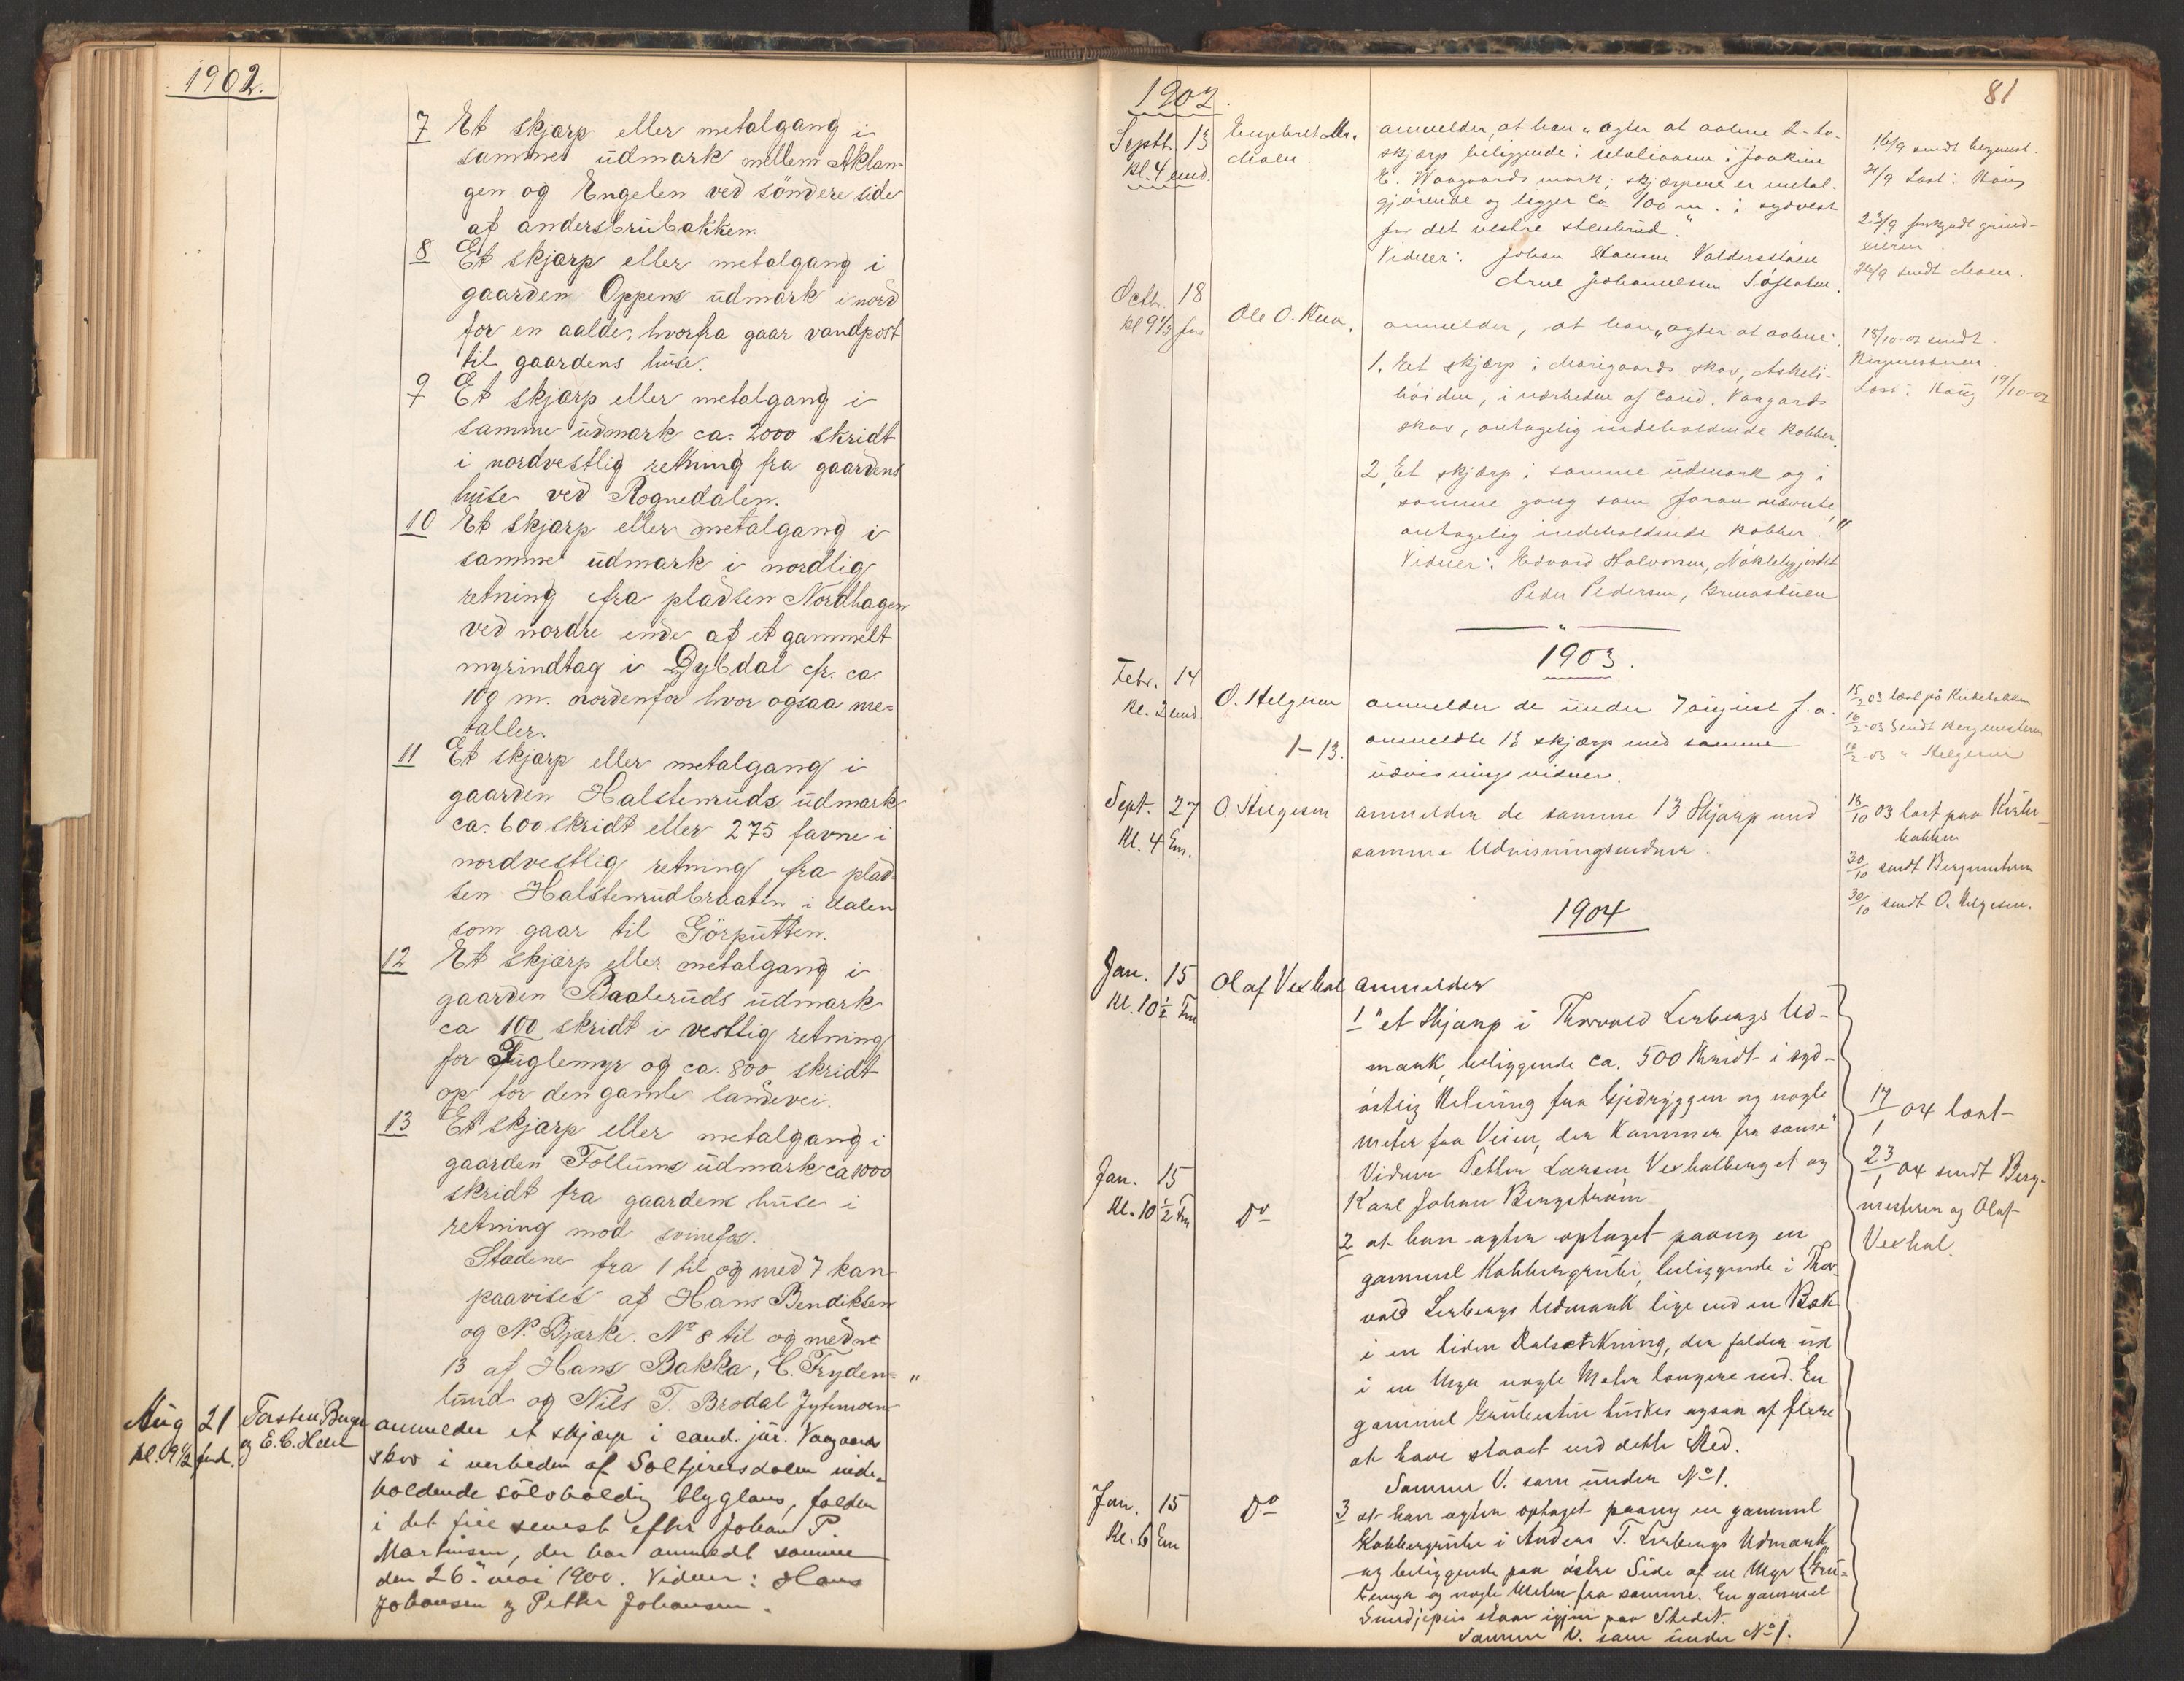 1902.
7 Et skjærp eller metalgang i
samme üdmark mellem Aklan-
gen og Engelen ved söndere side
af andersbrübakken.
8 Et skjærp eller metalgang i
gaarden Oppens üdmark i nord
for en aalde, hvorfra gaar vandpost
til gaardens hüse.
9 Et skjærp eller metalgang i
samme üdmark ca. 2000 skridt
i nordvestlig retning fra gaardens
hüse ved Rognedalen.
10 Et skjærp eller metalgang i
samme üdmark i nordlig
retning fra pladsen Nordhagen
ved nordre ende af et gammelt
myrindtag i Dybdal cfr. ca.
100 m. nordenfor hvor ogsaa me-
taller.
11 Et skjærp eller metalgang i
gaarden Halstenrüds üdmark
ca. 600 skridt eller 275 favne i
nordvestlig retning fra plad-
sen Halstenrüdbraaten i dalen
som gaar til Görpütten.
12 Et skjærp eller metalgang i
gaarden Baalerüds üdmark
ca 100 skridt i vestlig retning
for Füglemyr og ca. 800 skridt
op for den gamle landevei.
13 Et skjærp eller metalgang i
gaarden Follüms üdmark ca 1000
skridt fra gaardens hüse i
retning mod svinefos.
Stederne fra 1 til og med 7 kan
paavises af Hans Bendiksen
og N. Bjærke. No 8 til og med no
13 af Hans Bakka, C. Fryden-
lünd og Nils T. Brodal Jytemoen "
Aüg 21 Torsten Berge anmelder et skjærp i cand. jür. Vaagaards
kl. 9½ fmd. og E. C. Heen skov i nerheden af Soltjernsdalen inde-
holdende sölvholdig blyglans, falden
i det frie senest efter Johan P.
Martinsen, der har anmeldt samme
den 26. mai 1900. Vidner: Hans
Johansen og Petter Johansen.
81
1902.
Septb. 13 Engebret Mr. anmelder, at han "agter at aabne 2 - to -
kl. 4 emd. Moen skjærp beliggende i Valiaasen i Joakim
E. Waagaards mark; skjærpene er metal-
gjörende og ligger ca 100 m. i sydvest
for det vestre stenbrüd."
Vidner: Johan Hansen Valdersstüen
Arne Johannessen
16/9 sendt bergmest.
21/9 Læst: Haüg
23/9 forkyndt gründ-
eieren.
26/9 sendt Moen.
Octb. 18 Ole O. anmelder, at han "agter at aabne:
kl 9½ fm
1. Eet skjærp i Morigaards skov, Askeli-
höiden, i nærheden af cand. Vaagards
skov, antagelig indeholdende kobber.
2, Et skjærp i samme üdmark og i
samme gang som foran nævnte,
antagelig indeholdende kobber."
Vidner: Edvard Halvorsen, Nöklebygjordet
Peder Pedersen,
18/10-02 sendt
Bergmesteren
Læst: Haüg 19/10-02
1903.
Febr. 14 O. Helgesen anmelder de ünder 7 aügüst f.a.
kl. 2 emd. 1-13. anmeldte 13 skjærp med samme
üdvisningsvidner.
15/2 03 læst på Kirkebakken
16/2-03 Sendt Bergmesteren
16/2-03 " Helgesen
Sept. 27 O. Helgesen anmelder de samme 13 Skjærp med
Kl. 4 Em. samme Udvisningsvidner.
18/10 03 læst paa Kirke-
bakken
30/10 sendt Bergmesteren
30/10 sendt O. Helgesen.
1904
Jan. 15 Olaf Vexhal anmelder
Kl. 10½ Fm
1 "et Skjærp i Thorvald Lerbergs Ud-
mark, beliggende ca. 500 Skridt i syd-
östlig Retning fra Gjedryggen og nogle
meter fra Veien, der kommer fra samme"
Vidner Petter Larsen Vexhalberget og
Karl Johan Bergström
Jan. 15
Kl. 10½ Fm Do
2 at han agter optaget paany en
gammel Kobbergrübe, beliggende i Thor-
vald Lerbergs Udmark lige ved en Bæk
i en liden Dalsækning, der falder üd
i en Myr nogle Meter længere ned. En
gammel Grübestüe hüskes ogsaa af flere
at have staaet ved dette Sted.
Samme V. som ünder No 1.
17/1 04 læst
23/1 04 sendt Berg-
mesteren og Olaf
Vexhal.
Jan. 15 Do
Kl. 6 Em
3 at han agter optaget paany en gammel
Kobbergrübe i Anders T. Lerbergs Udmark
og beliggende paa östre Side af en Myr (Grü-
bemyr og nogle Meter fra samme. En gammel
staar igjen paa Stedet.
Samme V. som ünder No 1.